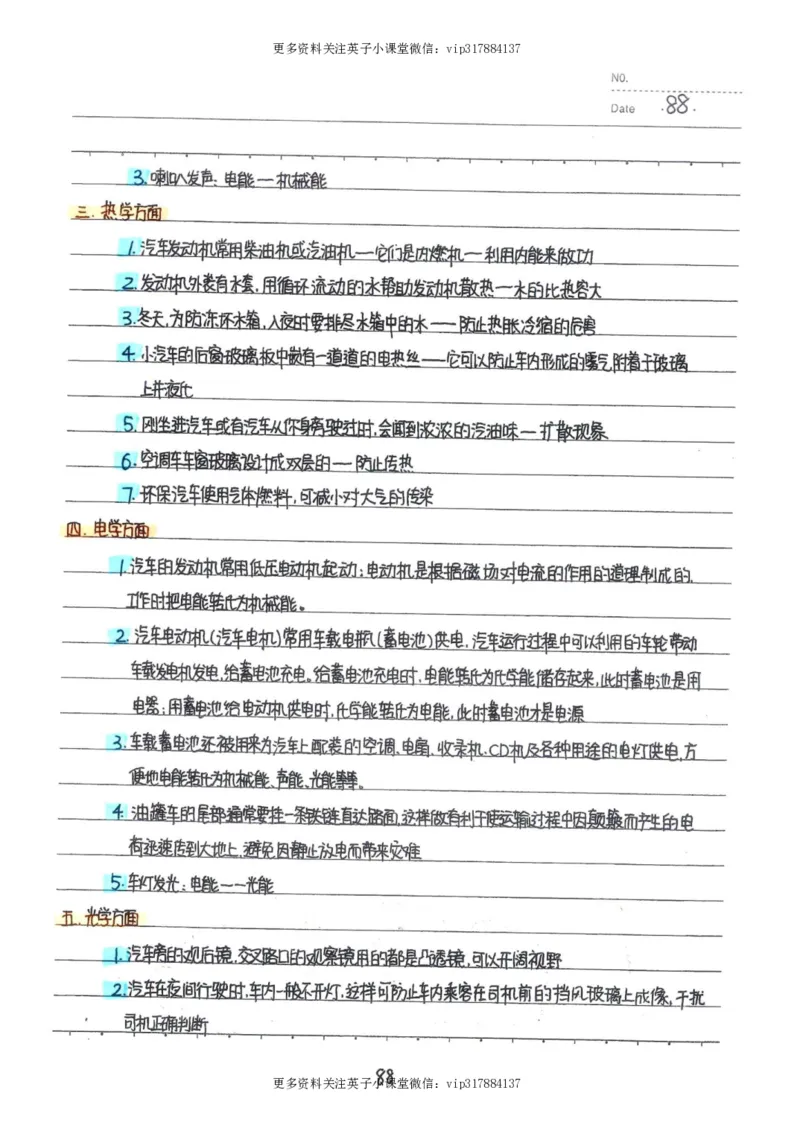 更多资料关注英子小课堂微信：vip317884137
NO.
Date ·88·
3.喇叭发声：电能一机械能
三.热学方面
1.汽车发动机常用柴油机或汽油机一它们是内燃机一利用内能来做功
2.发动机外装有水套,用循环流动的水帮助发动机散热一水的比热容大
3.冬天,为防冻坏水箱,入夜时要排尽水箱中的水——防止热胀冷缩的危害
4.小汽车的后窗玻璃板中嵌有一道道的电热丝——它可以防止车内形成的雾气,附着于玻璃
上并液化
5.刚坐进汽车或有汽车从你身旁驶过时,会闻到浓浓的汽油味一扩散现象
6.空调车车窗玻璃设计成双层的一防止传热
7.环保汽车使用气体燃料,可减小对大气的污染
四.电学方面
1.汽车的发动机常用低压电动机起动;电动机是根据磁场对电流的作用的道理制成的,
工作时把电能转化为机械能。
2.汽车电动机(汽车电机)常用车载电瓶(蓄电池)供电,汽车运行过程中可以利用的车轮带动
车载发电机发电,给蓄电池充电。给蓄电池充电时,电能转化为化学能储存起来,此时蓄电池是用
电器;用蓄电池给电动机供电时,化学能转化为电能,此时蓄电池才是电源
3.车载蓄电池还被用来为汽车上配装的空调、电扇、收录机、CD机及各种用途的电灯供电,方
便地电能转化为机械能、声能、光能等等。
4.油罐车的尾部通常要挂一条铁链直达路面,这样做有利于使运输过程中因颠簸而产生的电
荷迅速传到大地上,避免因静止放电而带来灾难
5.车灯发光:电能——光能
五.光学方面
1.汽车旁的观后镜,交叉路口的观察镜用的都是凸透镜,可以开阔视野
2.汽车在夜间行驶时,车内一般不开灯,这样可防止车内乘客在司机前的挡风玻璃上成像,干扰
司机正确判断
88
更多资料关注英子小课堂微信：vip317884137